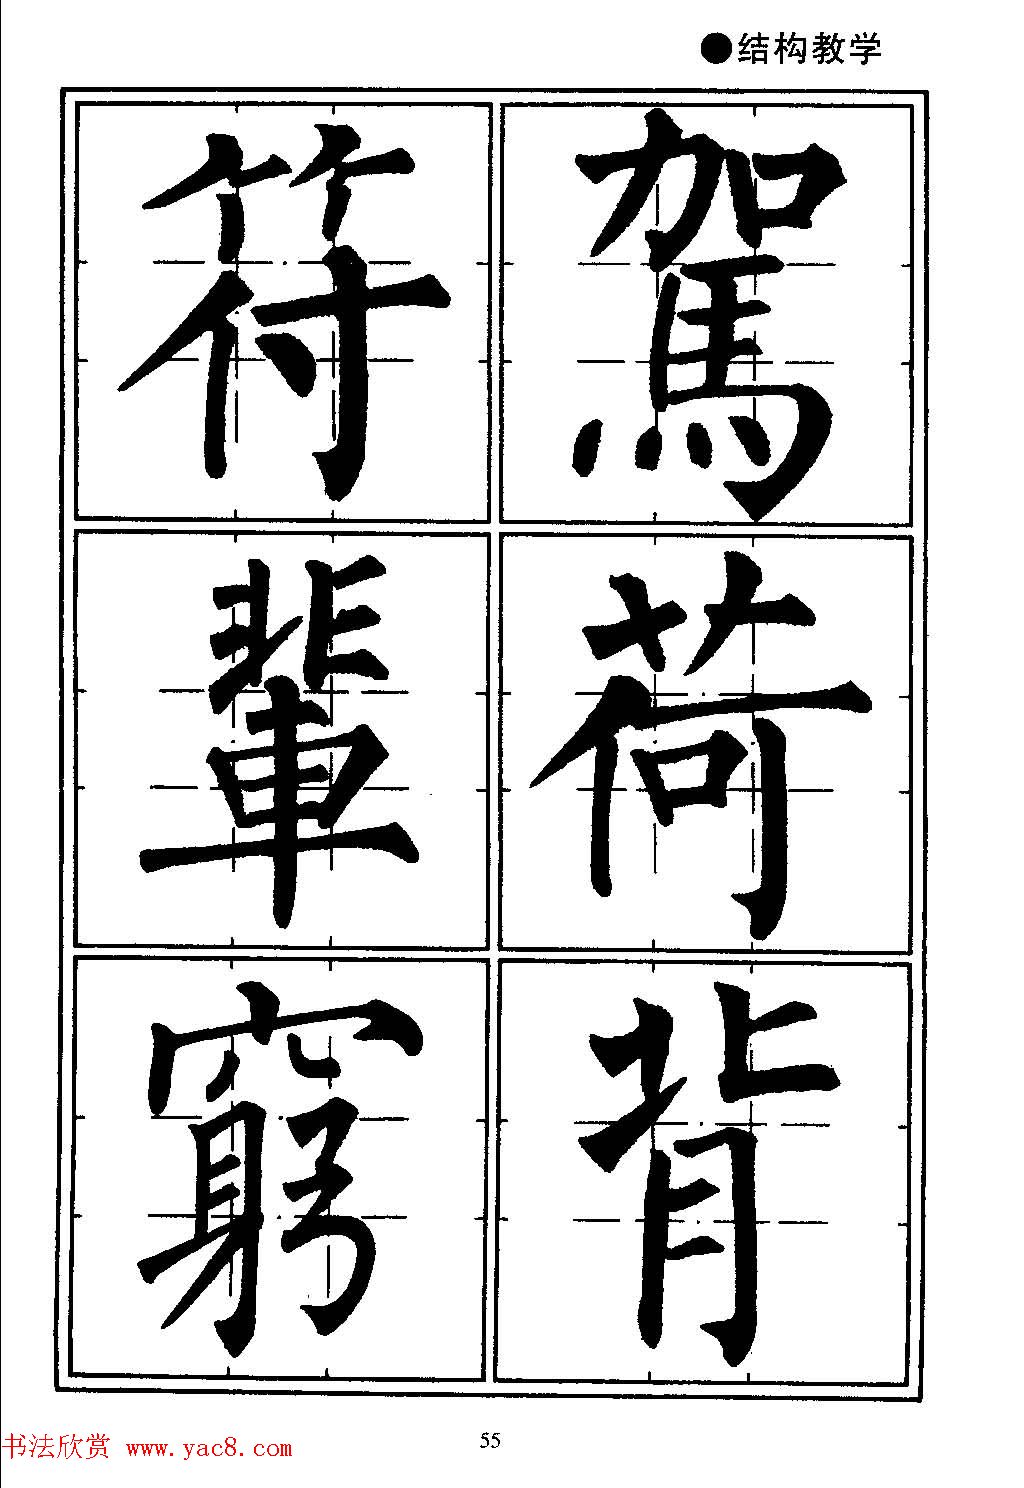 ●结构教学
符 駕
輩 荷
窮 背
55
书法欣赏 www.yac8.com